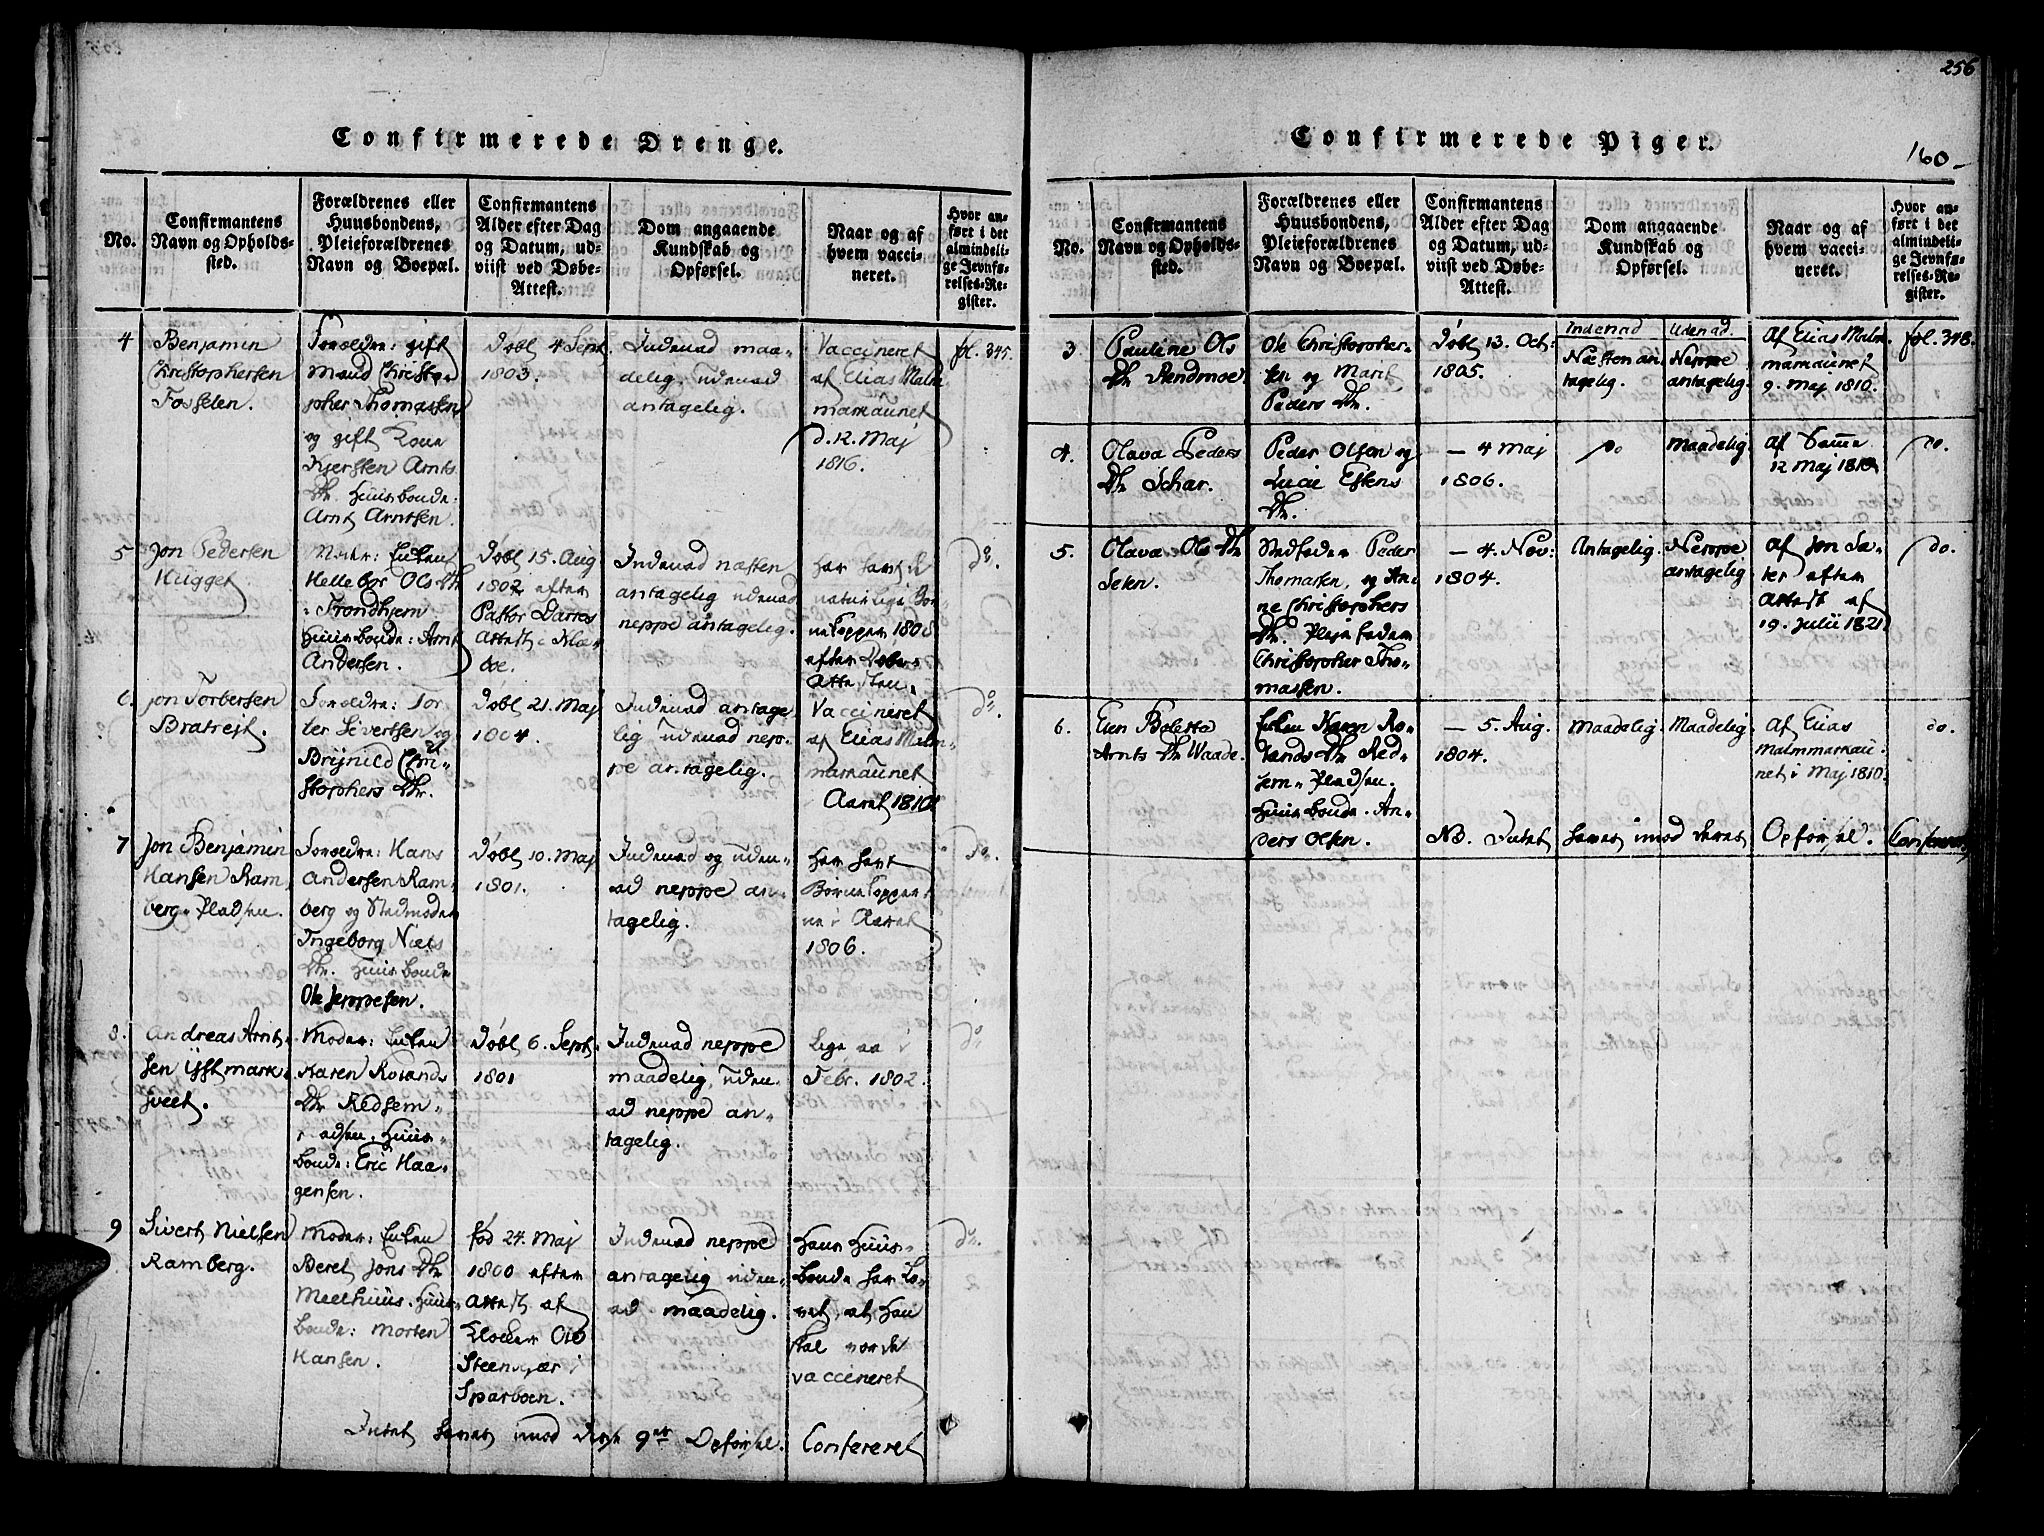 256
160
Confirmerede Drenge.
No.
Confirmantens
Navn og Opholds-
sted.
Forældrenes eller
Huusbondens,
Pleieforældrenes
Navn og Boepæl.
Confirmantens
Alder efter Dag
og Datum, ud-
viist ved Døbe-
Attest.
Dom angaaende
Kundskab og
Opførsel.
Naar og af
hvem vacci-
neret.
Hvor an-
ført i det
almindeli-
ge Jevnfø-
relses-Re-
gister.
4
Benjamin
Christophersen
Fosselen.
Foreldre: gift
Mand Christo-
pher Thomassen
og gift Kone
Kjersten Arnts
Dtr. Huusbonde:
Arnt Arntsen.
Døbt 4 Sept.
1803.
Indenad maa-
delig, udenad
antagelig.
Vaccineret
af Elias Malm
mamaunet
d. 12 Maj
1816.
fol. 345.
5
Jon Pedersen
Kugget
Moder: Enken
Hellebor Ols Dtr
i Trondhjem
Huusbonde: Arnt
Andersen.
Døbt 15. Aug
1802 efter
Pastor Darres
Attest i Klæ-
boe.
Indenad næsten
antagelig udenad
neppe antagelig.
har havt de
naturlige Bør-
nekopper 1808
efter Døbe-
Attesten.
do.
6.
Jon Torbersen
Bratrejt.
Foreldre: Tor-
ber Sivertsen og
Brynild Chri-
stophers Dtr.
Døbt 21. Maj
1804.
Indenad antage
lig udenad nep-
pe antagelig.
Vaccineret
af Elias Malm-
mamaunet
Aaret 1810
do.
7
Jon Benjamin
Hansen Ram-
berg-Pladsen.
Foreldre: Hans
Andersen Ram-
berg og Stedmoder
Ingeborg Niels
Dtr. Huusbonde
Ole Jeppesen.
Døbt 10. Maj
1801.
Indenad og uden-
ad neppe an-
tagelig.
Har havt
Børnekopper-
ne i Aaret
1806.
do.
8.
Andreas Arnt-
sen
Moder: Enken
Karen Rolands
Dtr Redsem-
Huus-
bonde: Eric Haa-
gensen.
Døbt 6. Sept.
1801
Indenad neppe
maadelig, uden-
ad neppe an-
tagelig.
Lige saa i
Febr. 1802.
do
9
Sivert Nielsen
Ramberg.
Moder: Enken
Beret Jons Dtr
Meelhuus. Huus-
bonde: Morten
Hansen.
fød 24. Maj
1800 efter
Attest af
Klokker Ole
Steenkjær i
Sparboen.
Indenad neppe
antagelig uden-
ad maadelig.
Hans Huus-
bonde har lo-
vet, at han
skal vorde
vaccineret
do.
Intet haves imod disse 9er Opførsel. Confereret
Confirmerede Piger.
No.
Confirmantens
Navn og Opholds-
sted.
Forældrenes eller
Huusbondens,
Pleieforældrenes
Navn og Boepæl.
Confirmantens
Alder efter Dag
og Datum, ud-
viist ved Døbe-
Attest.
Dom angaaende
Kundskab og
Opførsel.
Naar og af
hvem vacci-
neret.
Hvor an-
ført i det
almindeli-
ge Jevnfø-
relses-Re-
gister.
3
Pauline Ols
Dtr Rendmoe
Ole Christopher-
sen og Marit
Peders Dtr.
Døbt 13. Oct:
1805.
Indenad
Næsten an-
tagelig.
Udenad.
Neppe
antagelig.
Af Elias Malm
mamaunet
9. Maj 1810.
fol. 348.
4.
Olava Peders
Dtr Schar.
Peder Olsen og
Lucie Estens
Dtr.
— 4 Maj
1806.
do
Maadelig
Af Samme
12 Maj 1810
do.
5.
Olava Ols Dtr
Selen.
Stedfader Peder
Thomassen, og An-
ne Christophers
Dtr. Plejefader
Christopher Tho-
massen.
— 4. Nov:
1804.
Antagelig.
Neppe
antagelig
Af Jon Sæ-
ter efter
Attest af
19. Julii 1821
do.
6.
Elen Boletta
Arnts Dtr Waade.
Enken Karen Ro-
lands Dtr Red-
sem-Pladsen.
Huusbonde. An-
ders Olsen.
— 5. Aug.
1804.
Maadelig
Maadelig.
Af Elias
Malmmamau-
net i Maj 1810.
do.
NB. Intet haves imod deres Opførsel. Confereret